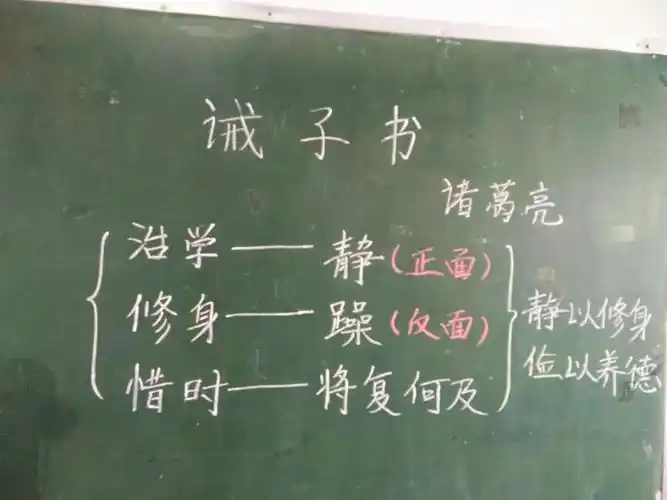 诫子书
诸葛亮
治学——静(正面)
修身——躁(反面)
惜时——将复何及
静以修身
俭以养德